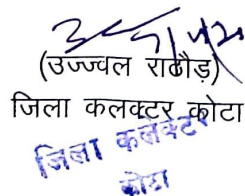 (उज्ज्वल राठौड़)
जिला कलक्टर कोटा
जिला कलेक्टर
कोटा